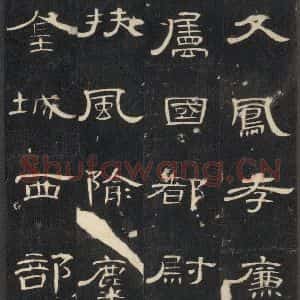 父鳳孝廉
屬國都尉
扶風隃麋
金城西部
Shufawang.CN